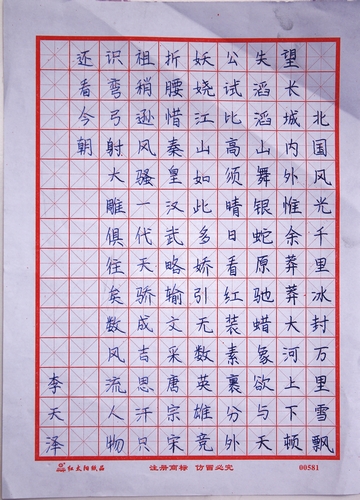 北国风光千里冰封万里雪飘
望长城内外惟余莽莽大河上下顿
失滔滔山舞银蛇原驰蜡象欲与天
公试比高须晴日看红装素裹分外
妖娆江山如此多娇引无数英雄竞
折腰惜秦皇汉武略输文采唐宗宋
祖稍逊风骚一代天骄成吉思汗只
识弯弓射大雕俱往矣数风流人物
还看今朝
李天泽
红太阳纸品 注册商标 仿冒必究 00581